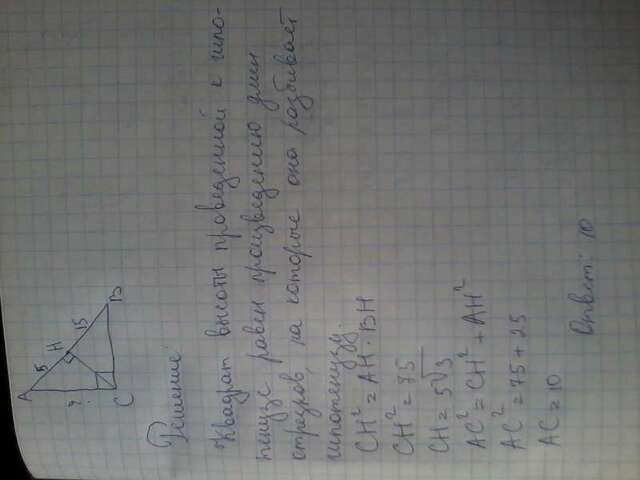 A
5
H
15
B
?
C
Решение
Квадрат высоты проведенной к гипо-
тенузе равен произведению длин
отрезков, на которые она разбивает
гипотенузу.
CH² = AH · BH
CH² = 75
CH = 5√3
AC² = CH² + AH²
AC² = 75 + 25
AC = 10
Ответ: 10